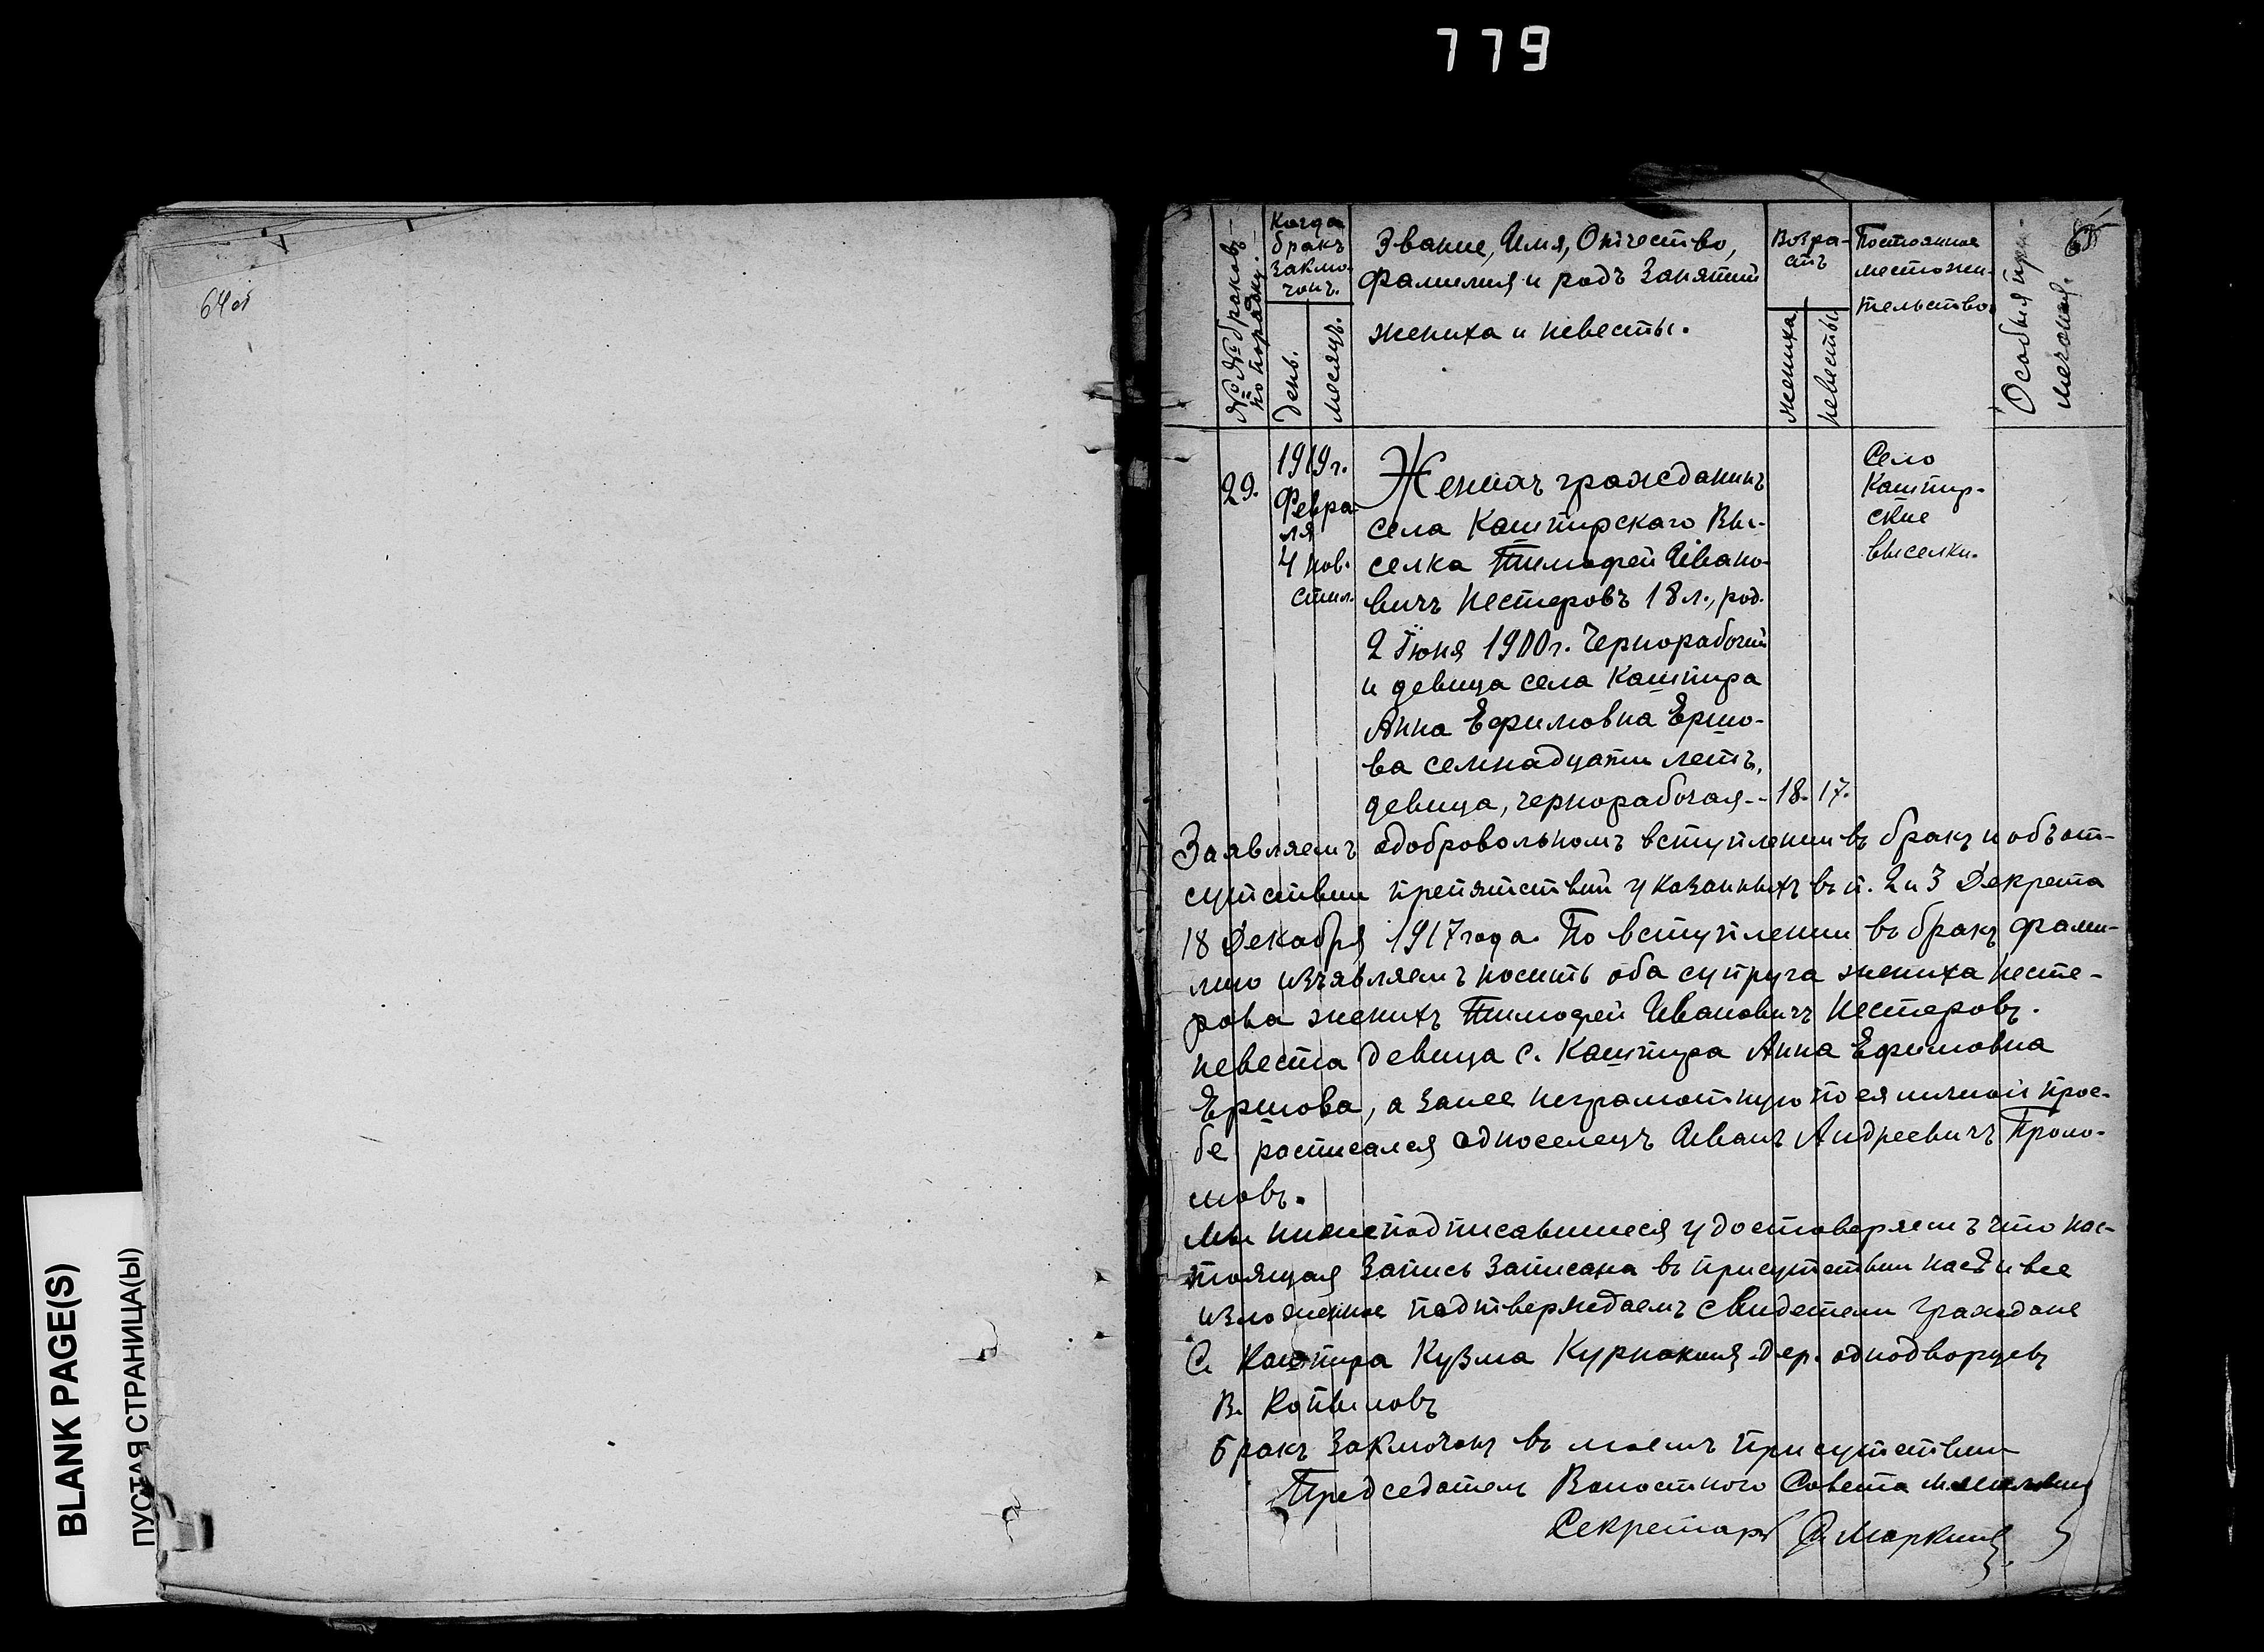 779
64об
BLANK PAGE(S)
ПУСТАЯ СТРАНИЦА(Ы)
№№ браковъ
по порядку.
Когда
бракъ
заклю-
чонъ.
День.
месяцъ.
Звание, Имя, Отчество,
фамилия и родъ Занятий
жениха и невесты.
Возра-
стъ
жениха
невесты
Постоянное
местожи-
тельство.
Особыя при-
мечания.
65
29.
1919г.
Февра-
ля
4 нов.
стил.
Женихъ гражданинъ
села Кашпирскаго Вы-
селка Тимофей Ивано-
вичъ Нестеровъ 18 л., род.
2 Іюня 1900 г. Чернорабочий
и девица села Кашпира
Анна Ефимовна Ершо-
ва семнадцати летъ,
девица, чернорабочая-- 18. 17.
Село
Кашпир-
ские
выселки.
Заявляемъ одобровольномъ вступлении въ бракъ и объ от-
сутствии препятствий указанныхъ въ п. 2 и 3 Декрета
18 Декабря 1917 года. По вступлении въ бракъ фами-
лию изъявляемъ носить оба супруга жениха Несте-
рова женихъ Тимофей Ивановичъ Нестеровъ.
невеста девица с. Кашпира Анна Ефимовна
Ершова, а занее неграмотную по ея личной прос-
бе росписался односелецъ Иванъ Андреевичъ
мы нижеподписавшиеся удостоверяемъ что нас-
тоящая Запись Записана въ присутствии насъ и все
изложенное подтверждаемъ Свидетели граждане
С. Кашпира Кузма Дер. однодворцевъ
В. Копыловъ
бракъ Заключонъ въ моемъ присутствии
Председатель Волостного Совета
Секретарь Маркинъ